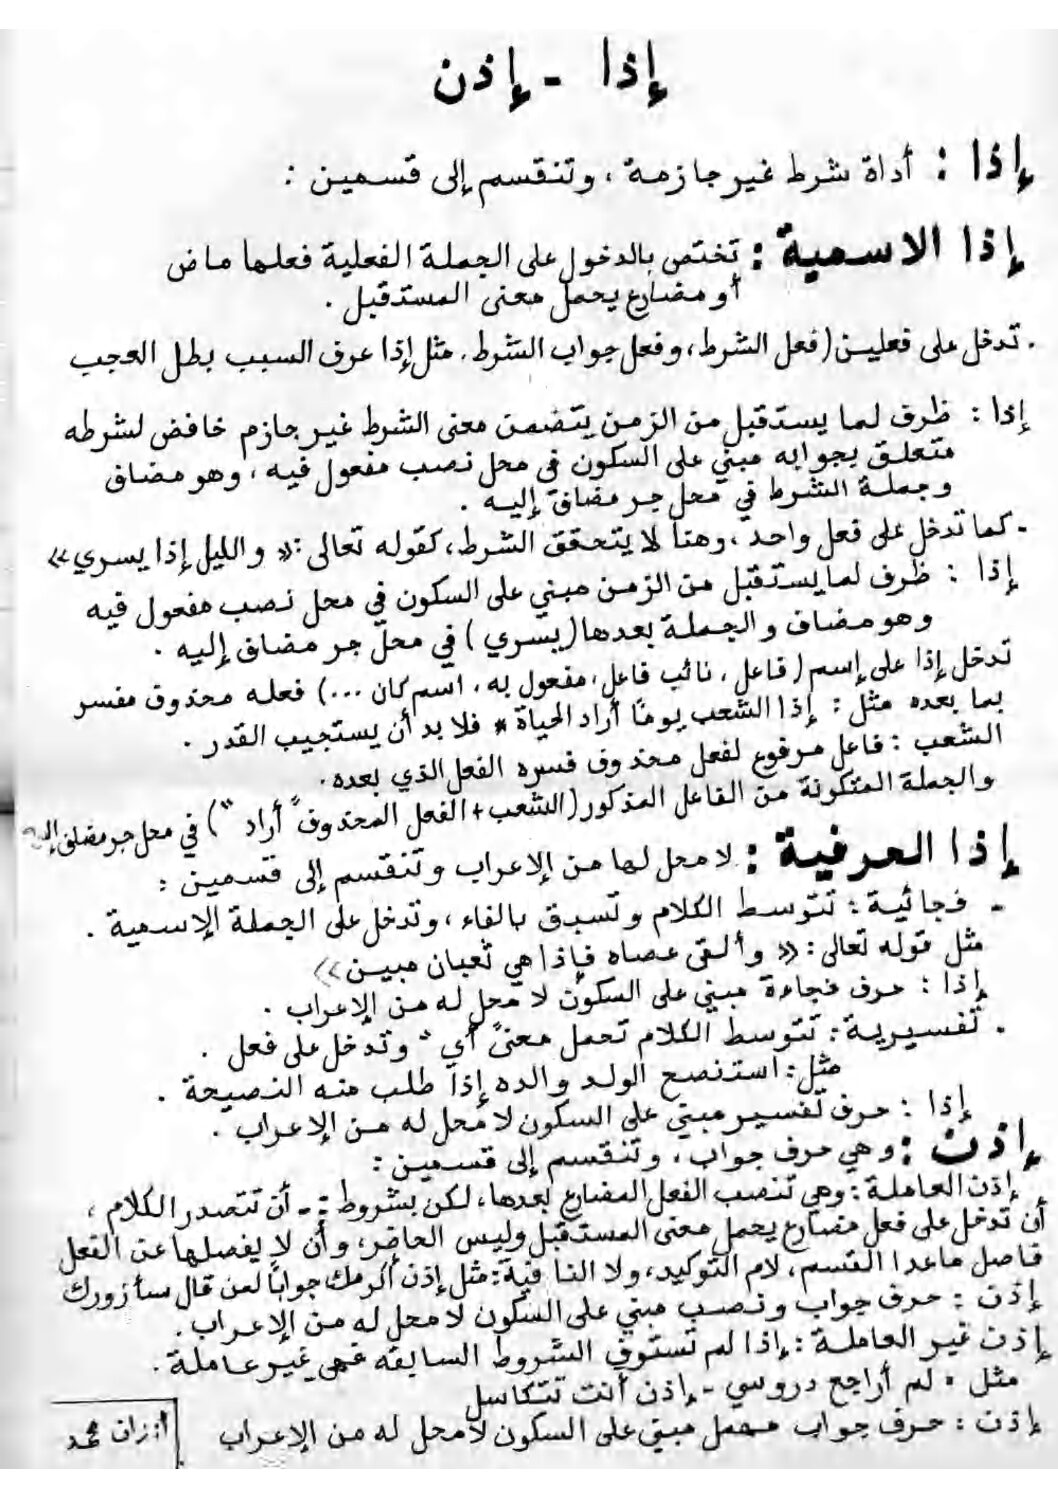 إذا - إذن
إذا : أداة شرط غير جازمة ، وتنقسم إلى قسمين :
إذا الاسمية : تختص بالدخول على الجملة الفعلية فعلها ماض
أو مضارع يحمل معنى المستقبل .
. تدخل على فعلين (فعل الشرط، وفعل جواب الشرط. مثل إذا عرف السبب بطل العجب
إذا : ظرف لما يستقبل من الزمن يتضمن معنى الشرط غير جازم خافض لشرطه
متعلق بجوابه مبني على السكون في محل نصب مفعول فيه ، وهو مضاف
وجملة الشرط في محل جر مضاف إليه .
- كما تدخل على فعل واحد ، وهنا لا يتحقق الشرط ، كقوله تعالى : « والليل إذا يسري »
إذا : ظرف لما يستقبل من الزمن مبني على السكون في محل نصب مفعول فيه
وهو مضاف والجملة بعدها (يسري) في محل جر مضاف إليه .
تدخل إذا على إسم (فاعل ، نائب فاعل، مفعول به ، اسم كان ...) فعله محذوف مفسر
بما بعده مثل : إذا الشعب يومًا أراد الحياة * فلا بد أن يستجيب القدر .
الشعب : فاعل مرفوع لفعل محذوف فسره الفعل الذي بعده .
والجملة المتكونة من الفاعل المذكور (الشعب + الفعل المحذوف "أراد") في محل جر مضاف إليه
إذا الحرفية : لا محل لها من الإعراب وتنقسم إلى قسمين :
- فجائية : تتوسط الكلام وتسبق بالفاء ، وتدخل على الجملة الإسمية .
مثل قوله تعالى : « وألقى عصاه فإذا هي ثعبان مبين »
إذا : حرف فجاءة مبني على السكون لا محل له من الإعراب .
. تفسيرية : تتوسط الكلام تحمل معنىً "أي" وتدخل على فعل .
مثل : استنصح الولد والده إذا طلب منه النصيحة .
إذا : حرف تفسير مبني على السكون لا محل له من الإعراب .
إذن : وهي حرف جواب ، وتنقسم إلى قسمين :
إذن العاملة : وهي تنصب الفعل المضارع بعدها، لكن بشروط : - أن تتصدر الكلام ،
أن تدخل على فعل مضارع يحمل معنى المستقبل وليس الحاضر ، وأن لا يفصلها عن الفعل
فاصل ماعدا القسم ، لام التوكيد، ولا النافية : مثل إذن أكرمك جوابًا لمن قال سأزورك
إذن : حرف جواب ونصب مبني على السكون لا محل له من الإعراب .
إذن غير العاملة : إذا لم تستوف الشروط السابقة فهي غير عاملة .
مثل : لم أراجع دروسي - إذن أنت تتكاسل
إذن : حرف جواب مهمل مبني على السكون لا محل له من الإعراب
أنزاف محمد